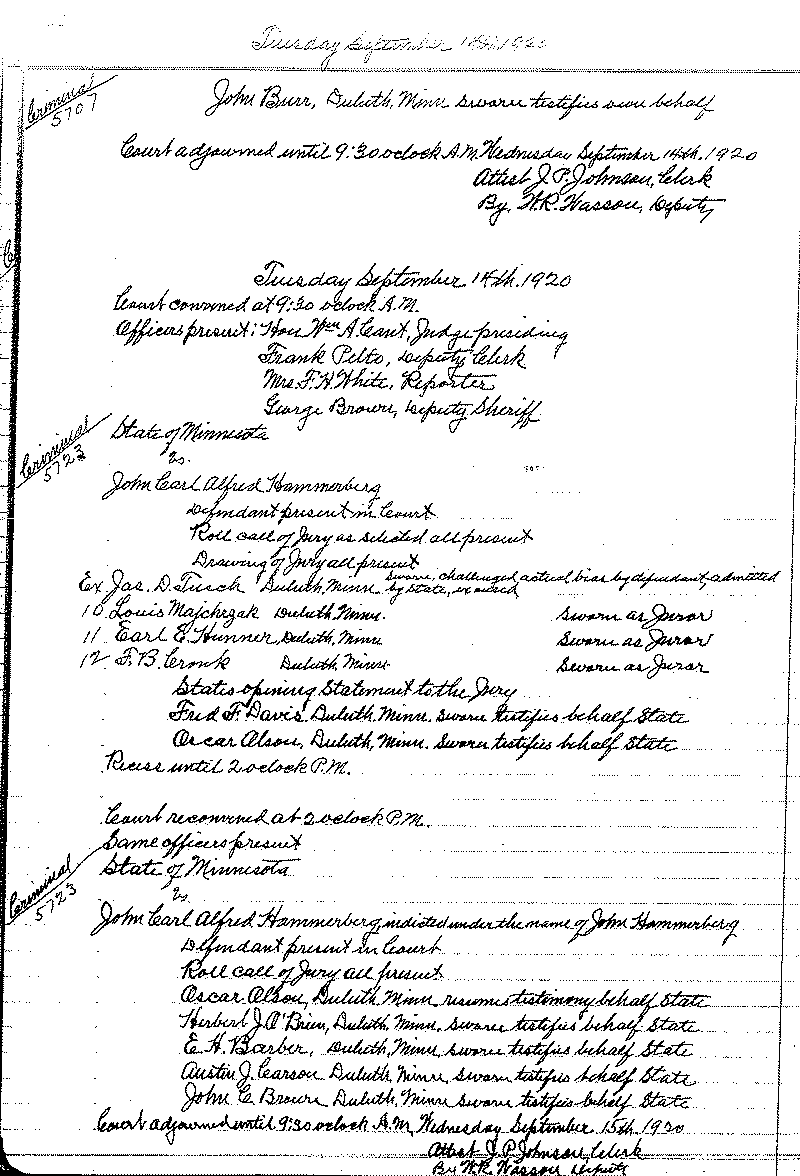 Tuesday September 14th. 1920
Criminal
5707
John Burr, Duluth, Minn sworn testifies own behalf
Court adjourned until 9:30 oclock A.M. Wednesday September 14th. 1920
Attest J.P. Johnson, Clerk
By. W.R. Wasson, Deputy
Tuesday September 14th. 1920
Court convened at 9:30 oclock A.M.
Officers present: Hon Wm A. Cant, Judge presiding
Frank Pelto, Deputy Clerk
Mrs. F.H. White, Reporter
George Brown, Deputy Sheriff
Criminal
5723
State of Minnesota
vs.
John Carl Alfred Hammerberg
Defendant present in Court
Roll call of Jury as selected all present
Drawing of Jury all present
Ex Jas. D. Tusch Duluth, Minn sworn, challenged actual bias by defendant, admitted
by state, excused
10 Louis Majchrzak Duluth, Minn. Sworn as Juror
11 Earl E. Hunner, Duluth, Minn Sworn as Juror
12 F.B. Cronk Duluth, Minn Sworn as Juror
States opining Statement to the Jury
Fred F. Davis. Duluth, Minn. sworn testifies behalf State
Oscar Olson, Duluth, Minn. sworn testifies behalf State
Recess until 2 oclock P.M.
Court reconvined at 2 oclock P.M.
Same officers present
Criminal
5723
State of Minnesota
vs.
John Carl Alfred Hammerberg, indicted under the name of John Hammerberg
Defendant present in Court
Roll call of Jury all present
Oscar Olson, Duluth, Minn resumes testimony behalf State
Herbert J. O'Brien, Duluth, Minn. sworn testifies behalf State
E.H. Barber, Duluth, Minn sworn testifies behalf State
Austin J. Carson Duluth, Minn, sworn testifies behalf State
John C. Brown Duluth, Minn sworn testifies behalf State
Court adjourned until 9:30 oclock A.M. Wednesday September 15th. 1920
Attest J.P. Johnson, Clerk
By W.R. Wasson Deputy